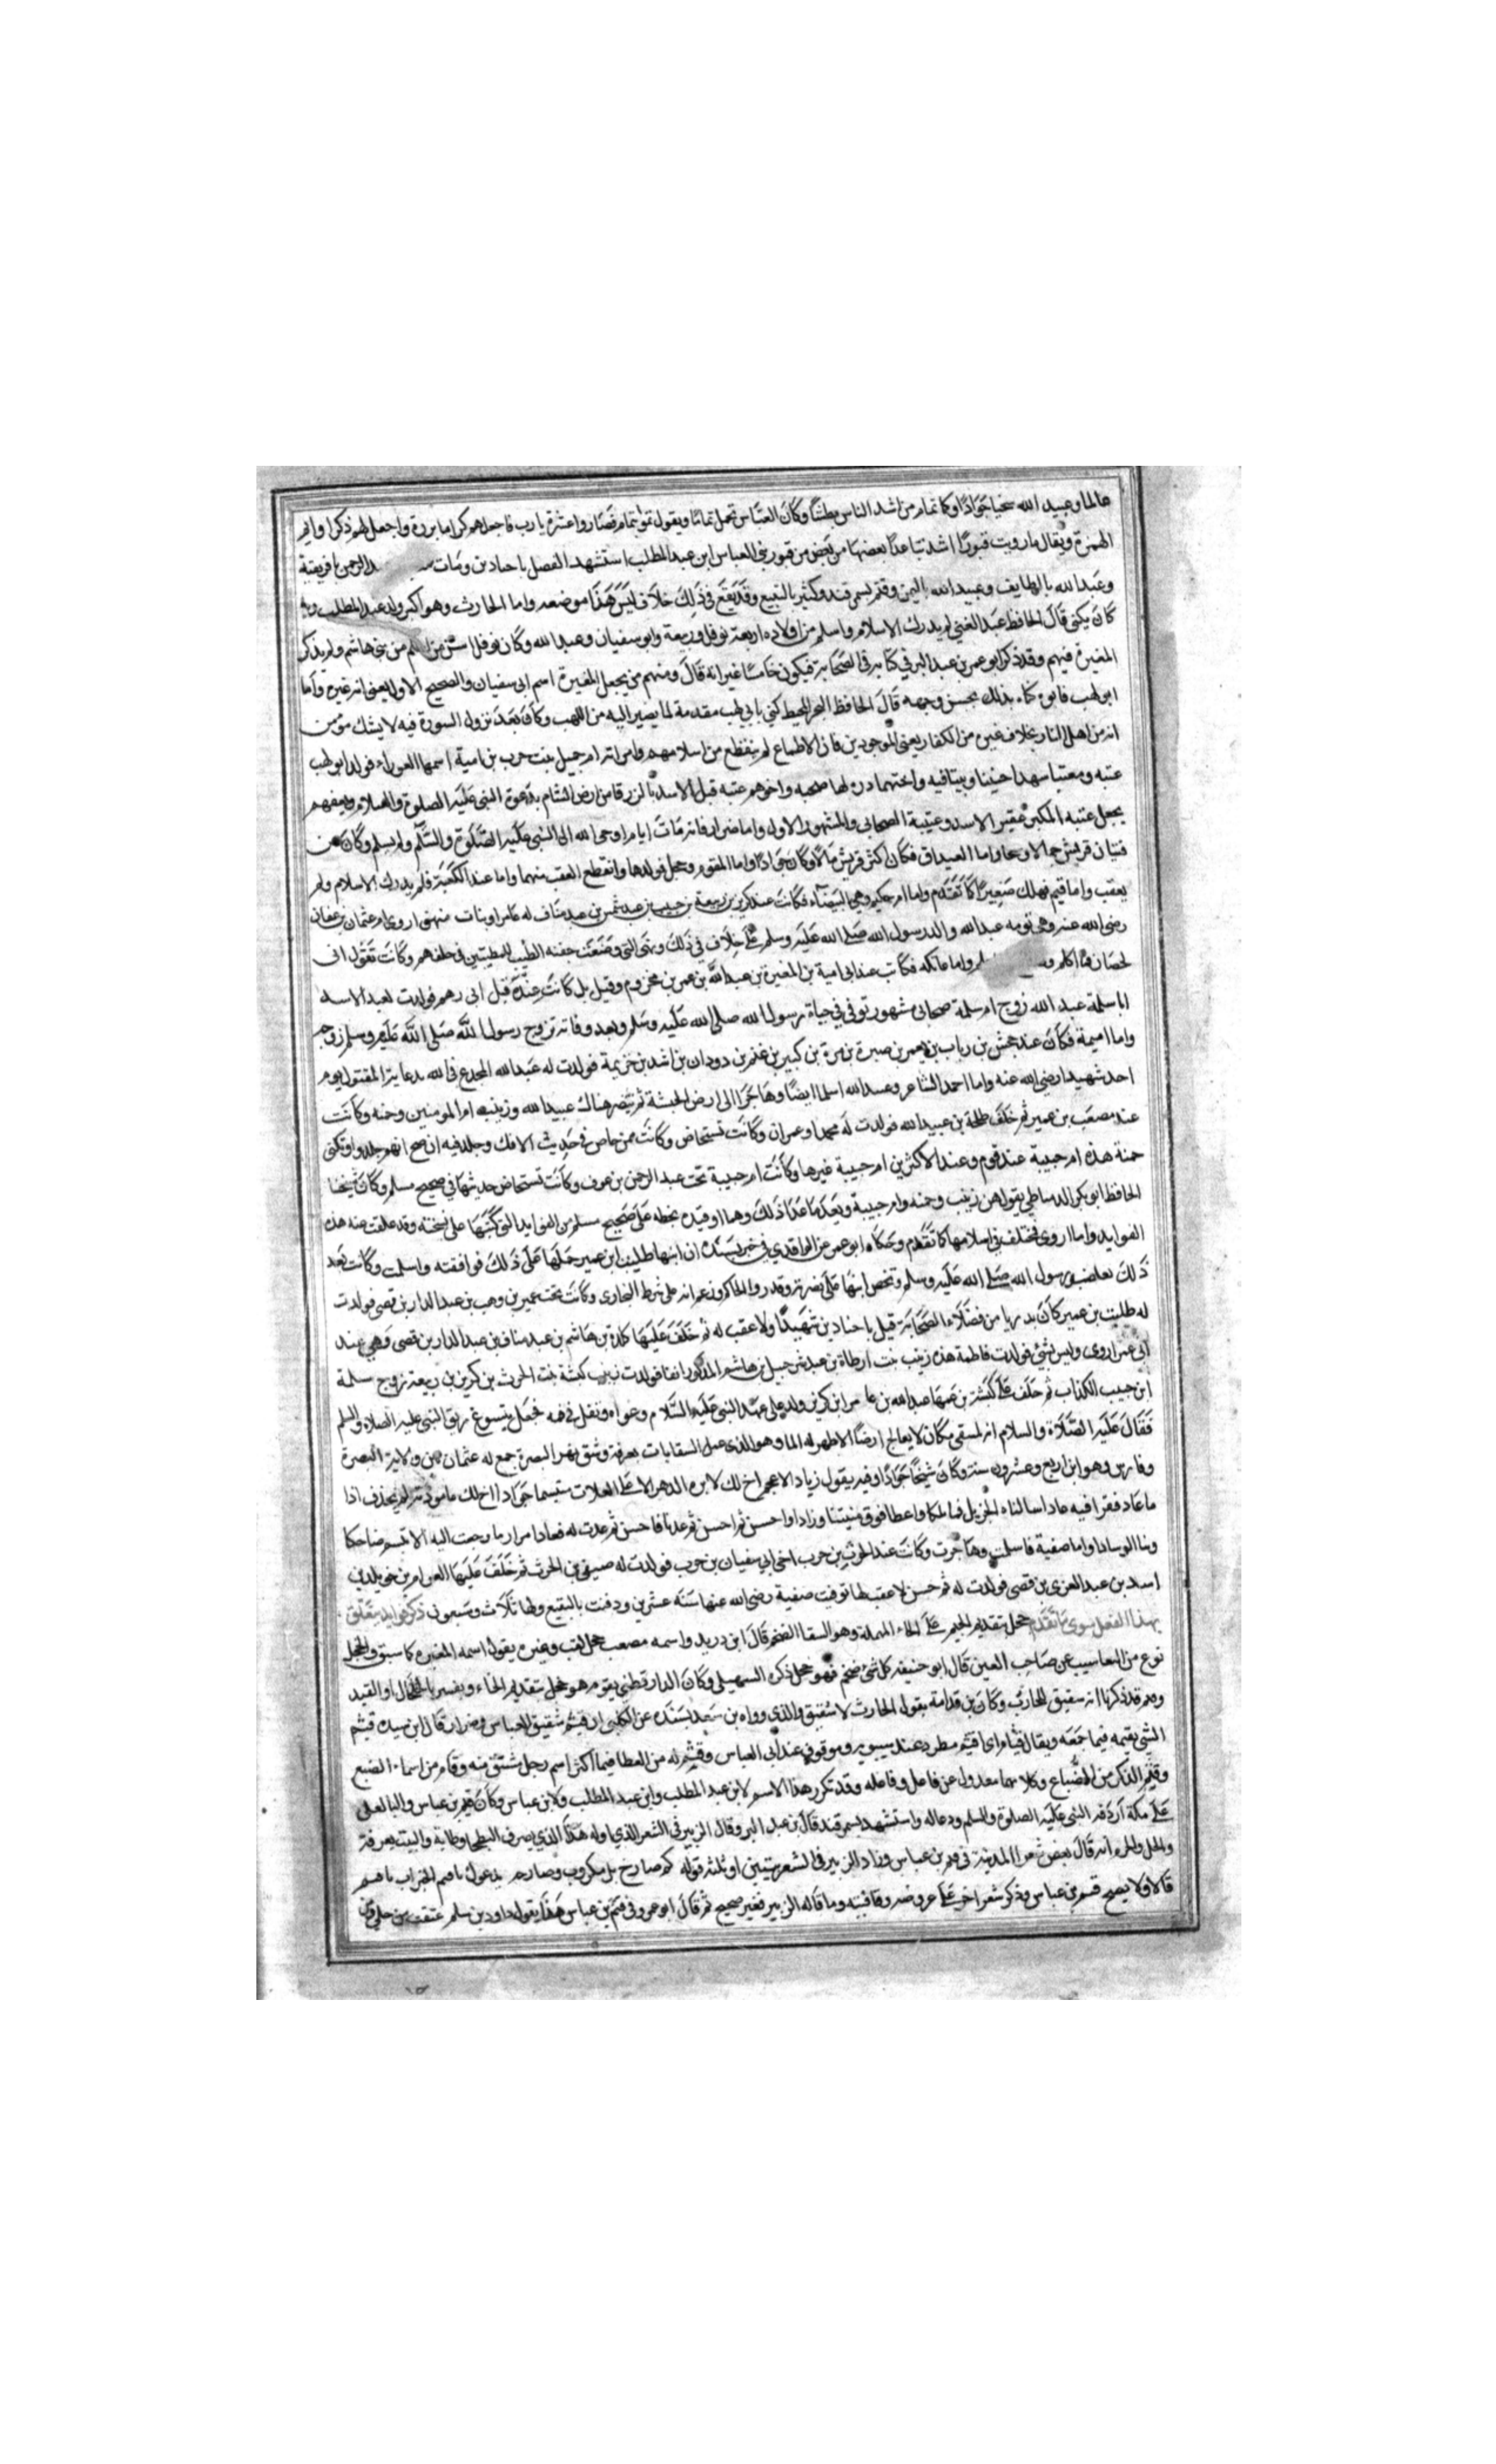 عالما وعبيد الله سخيا جوادا وكان تمام من اشد الناس بطشا وكان العباس تحمل تماما ويقول تموا بتمام فصاروا عشرة يارب فاجعلهم كراما بررة واجعل لهم ذكرا وانم
الثمرة ويقال ما رويت قبورا اشد تباعدا بعضها من بعض من قبور بني العباس ابن عبد المطلب استشهد الفضل باجنادين ومات الرحمن بافريقية
وعبد الله بالطايف وعبيد الله باليمن وقثم بسمرقند وكثير بالبقيع وقد يقع في ذلك خلاف ليس هذا موضعه واما الحارث وهو اكبر ولد عبد المطلب وبه
كان يكنى قال الحافظ عبد الغني لم يدرك الاسلام واسلم من اولاده اربعة نوفل وربيعة وابو سفيان وعبد الله وكان نوفل اسن من اسلم من بني هاشم ولم يذكر
المغيرة فيهم وقد ذكر ابو عمر بن عبد البر في كتابه في الصحابة فيكون خامسا غير انه قال ومنهم من يجعل المغيرة اسم ابي سفيان والصحيح الاول يعني انه غيره واما
ابو لهب فابوه كناه بذلك بحسن وجهه قال الحافظ كني بابي لهب مقدمة لما يصير اليه من اللهب وكان بعد نزول السورة فيه لا يشك مؤمن
انه من اهل النار بخلاف غيره من الكفار يعني الموجودين فان الاطماع لم تنقطع من اسلامهم وامراته ام جميل بنت حرب بن امية اسمها العوراء فولد ابو لهب
عتبه ومعتبا شهدا حنينا وثبتا فيه واختهما دره لها صحبه واخوهم عتبه قتل الاسد بالزرقا من ارض الشام بدعوة النبي عليه الصلوة والسلام وبعضهم
يجعل عتبه المكبر عقير الاسد وعتيبة الصحابي والمشهور الاول واما ضرار فانه مات ايام اوحى الله الى النبي عليه الصلوة والسلام ولم يسلم وكان من
فتيان قريش جمالا وسخا واما الغيداق فكان اكثر قريش مالا وكان جوادا واما المقوم وحجل فولدها وانقطع العقب منهما واما عبد الكعبة فلم يدرك الاسلام ولم
يعقب واما قثم فهلك صغيرا كما تقدم واما ام حكيم وهي البيضاء فكانت عند كريز بن ربيعة بن حبيب بن عبد شمس بن عبد مناف له عامرا وبنات منهن اروى ام عثمان بن عفان
رضي الله عنه وهي توءمه عبد الله والد رسول الله صلى الله عليه وسلم على خلاف في ذلك وهي التي وضعت جفنه الطيب للمطيبين في حلفهم وكانت تقول اني
لحصان فما اكلم واما عاتكه فكانت عند ابي امية بن المغيرة بن عبد الله بن عمر بن مخزوم وقيل بل كانت عنده قبل ابي رهم فولدت لعبد الاسد
ابا سلمة عبد الله زوج ام سلمة صحابي مشهور توفي في حياة رسول الله صلى الله عليه وسلم وبعد وفاته تزوج رسول الله صلى الله عليه وسلم زوجه
واما اميمة فكان عند جحش بن رياب بن يعمر بن صبرة بن مرة بن كبير بن غنم بن دودان بن اسد بن خزيمة فولدت له عبد الله المجدع في الله بدعايه المقتول يوم
احد شهيدا رضي الله عنه واما احمد الشاعر وعبد الله اسلما ايضا وهاجرا الى ارض الحبشة ثم تنصر هناك عبيد الله وزينب ام المومنين وحمنه وكانت
عند مصعب بن عمير ثم خلف طلحة بن عبيد الله فولدت له محمدا وعمران وكانت تستحاض وكانت ممن خاض في حديث الافك وجلد فيه ان صح انهم جلدوا وتكنى
حمنة هذه ام حبيبة عند قوم وعند الاكثرين ام حبيبة غيرها وكانت ام حبيبة تحت عبد الرحمن بن عوف وكانت تستحاض حديثها في صحيح مسلم وكان شيخنا
الحافظ ابو بكر الدمياطي يقول هن زينب وحمنه وام حبيبة ويعد ما عدا ذلك وهما وقيده بخطه على صحيح مسلم من الفوايد التي كتبها على نسخته وقد علقت عنه هذه
الفوايد واما اروى فمختلف في اسلامها كما تقدم وحكاه ابو عمر عن الواقدي في خبر يسنده ان ابنها طليب ابن عمير حملها على ذلك فوافقته واسلمت وكانت بعد
ذلك تعاضد رسول الله صلى الله عليه وسلم وتحض ابنها على نصرته وقد رواه الحاكم وزعم انه على شرط البخارى وكانت تحت عمير بن وهب بن عبد الدار بن قصي فولدت
له طليب بن عمير كان بدريا من فضلاء الصحابة قتل باجنادين شهيدا ولا عقب له ثم خلف عليها كلدة بن هاشم بن عبد مناف بن عبد الدار بن قصي فهي عند
ابي عمر اروى وليس بشيء فولدت فاطمة هذه زينب بنت ارطاة بن عبد شرحبيل بن هاشم المذكور انفا فولدت زينب كيسة بنت الحرث بن كريز بن ربيعة زوج سلمة
ابن حبيب الكذاب ثم خلف على كيسة بن عمها عبد الله بن عامر ابن كريز ولد على عهد النبي عليه السلام وعواه وتفل في فيه فجعل يتسوغ ريق النبي عليه الصلاة والسلم
فقال عليه الصلاة والسلام انه لمسقى فكان لا يعالج ارضا الا ظهر له الما وهو الذي عمل السقايات بعرفة وشق نهر البصرة جمع له عثمان بين ولاية البصرة
وفارس وهو ابن اربع وعشرون سنة وكان شيخا جوادا وفيه يقول زياد الاعجم اخ لك لا تراه الدهر الا على العلات مبتسما جوادا اخ لك ما مودته
ما عاد فقرا فيه عادا سالناه الجزيل فما تلكا واعطا فوق منيتنا وزادا واحسن ثم احسن ثم عدنا فاحسن ثم عدت له فعادا مرارا ما رجعت اليه الا تبسم ضاحكا
وثنا الوسادا واما صفية فاسلمت وهاجرت وكانت عند الحرث بن حرب اخي ابي سفيان بن حرب فولدت له صيفي بن الحرث ثم خلف عليها العوام بن خويلد بن
اسد بن عبد العزى بن قصي فولدت له ثم حسن لا عقب لها توفيت صفية رضي الله عنها سنه عشرين ودفنت بالبقيع ولها ثلاث وسبعون ذكر فوايد يتعلق
بهذا الفصل سوى ما تقدم حجل بتقديم الجيم على الحاء المهملة وهو السقا الضخم قال ابن دريد واسمه مصعب حجل لقب وغيره يقول اسمه المغيره كما سبق والحجل
نوع من اليعاسيب عن صاحب العين قال ابو حنيفه كل شئ ضخم فهو حجل ذكره السهيلي وكان الدارقطني يقوم هو حجل بتقديم الحاء ويفسر بالخلخال او القيد
وقثم قد ذكرنا انه شقيق الحارث وكان بن قدامة يقول الحارث لا شقيق والذي رواه بن سعد بسنده عن الكلبي ان قثم شقيق العباس وضرار قال ابن سيده قيثم
الشي يقثمه فيما جمعه ويقال قثام اى اقثم مطرد عند سيبويه وموقوف عند ابي العباس وقثم له من العطا فيما اكثر اسم رجل مشتق منه وقثام من اسماء الضبع
وقثم الذكر من الضباع وكلاهما معدول عن فاعل وفاعله وقد تكرر هذا الاسم لابن عبد المطلب وابن عبد المطلب ولابن عباس وكان قثم بن عباس واليا لعلي
على مكة اردفه النبي عليه الصلوة والسلم ودعا له واستشهد بسمرقند قال بن عبد البر وقال الزبير في الشعر الذي اوله هذا الذي يعرف البطحا وطاية والبيت يعرفه
والحل والحرم انه قال بعض شعرا المدينة في قثم بن عباس وزاد الزبير في الشعر بيتين او ثلثه قوله كم صارخ بل مكروب وصارخه يدعوك يا قثم الخيرات يا قثم
قالا ولا يصح قثم بن عباس وذكر شعرا اخر على عروضه وقافيته وما قاله الزبير فغير صحيح ثم قال ابو عمر وفي قثم بن عباس هذا يقول داود بن سلم عتقت من حلي ومن